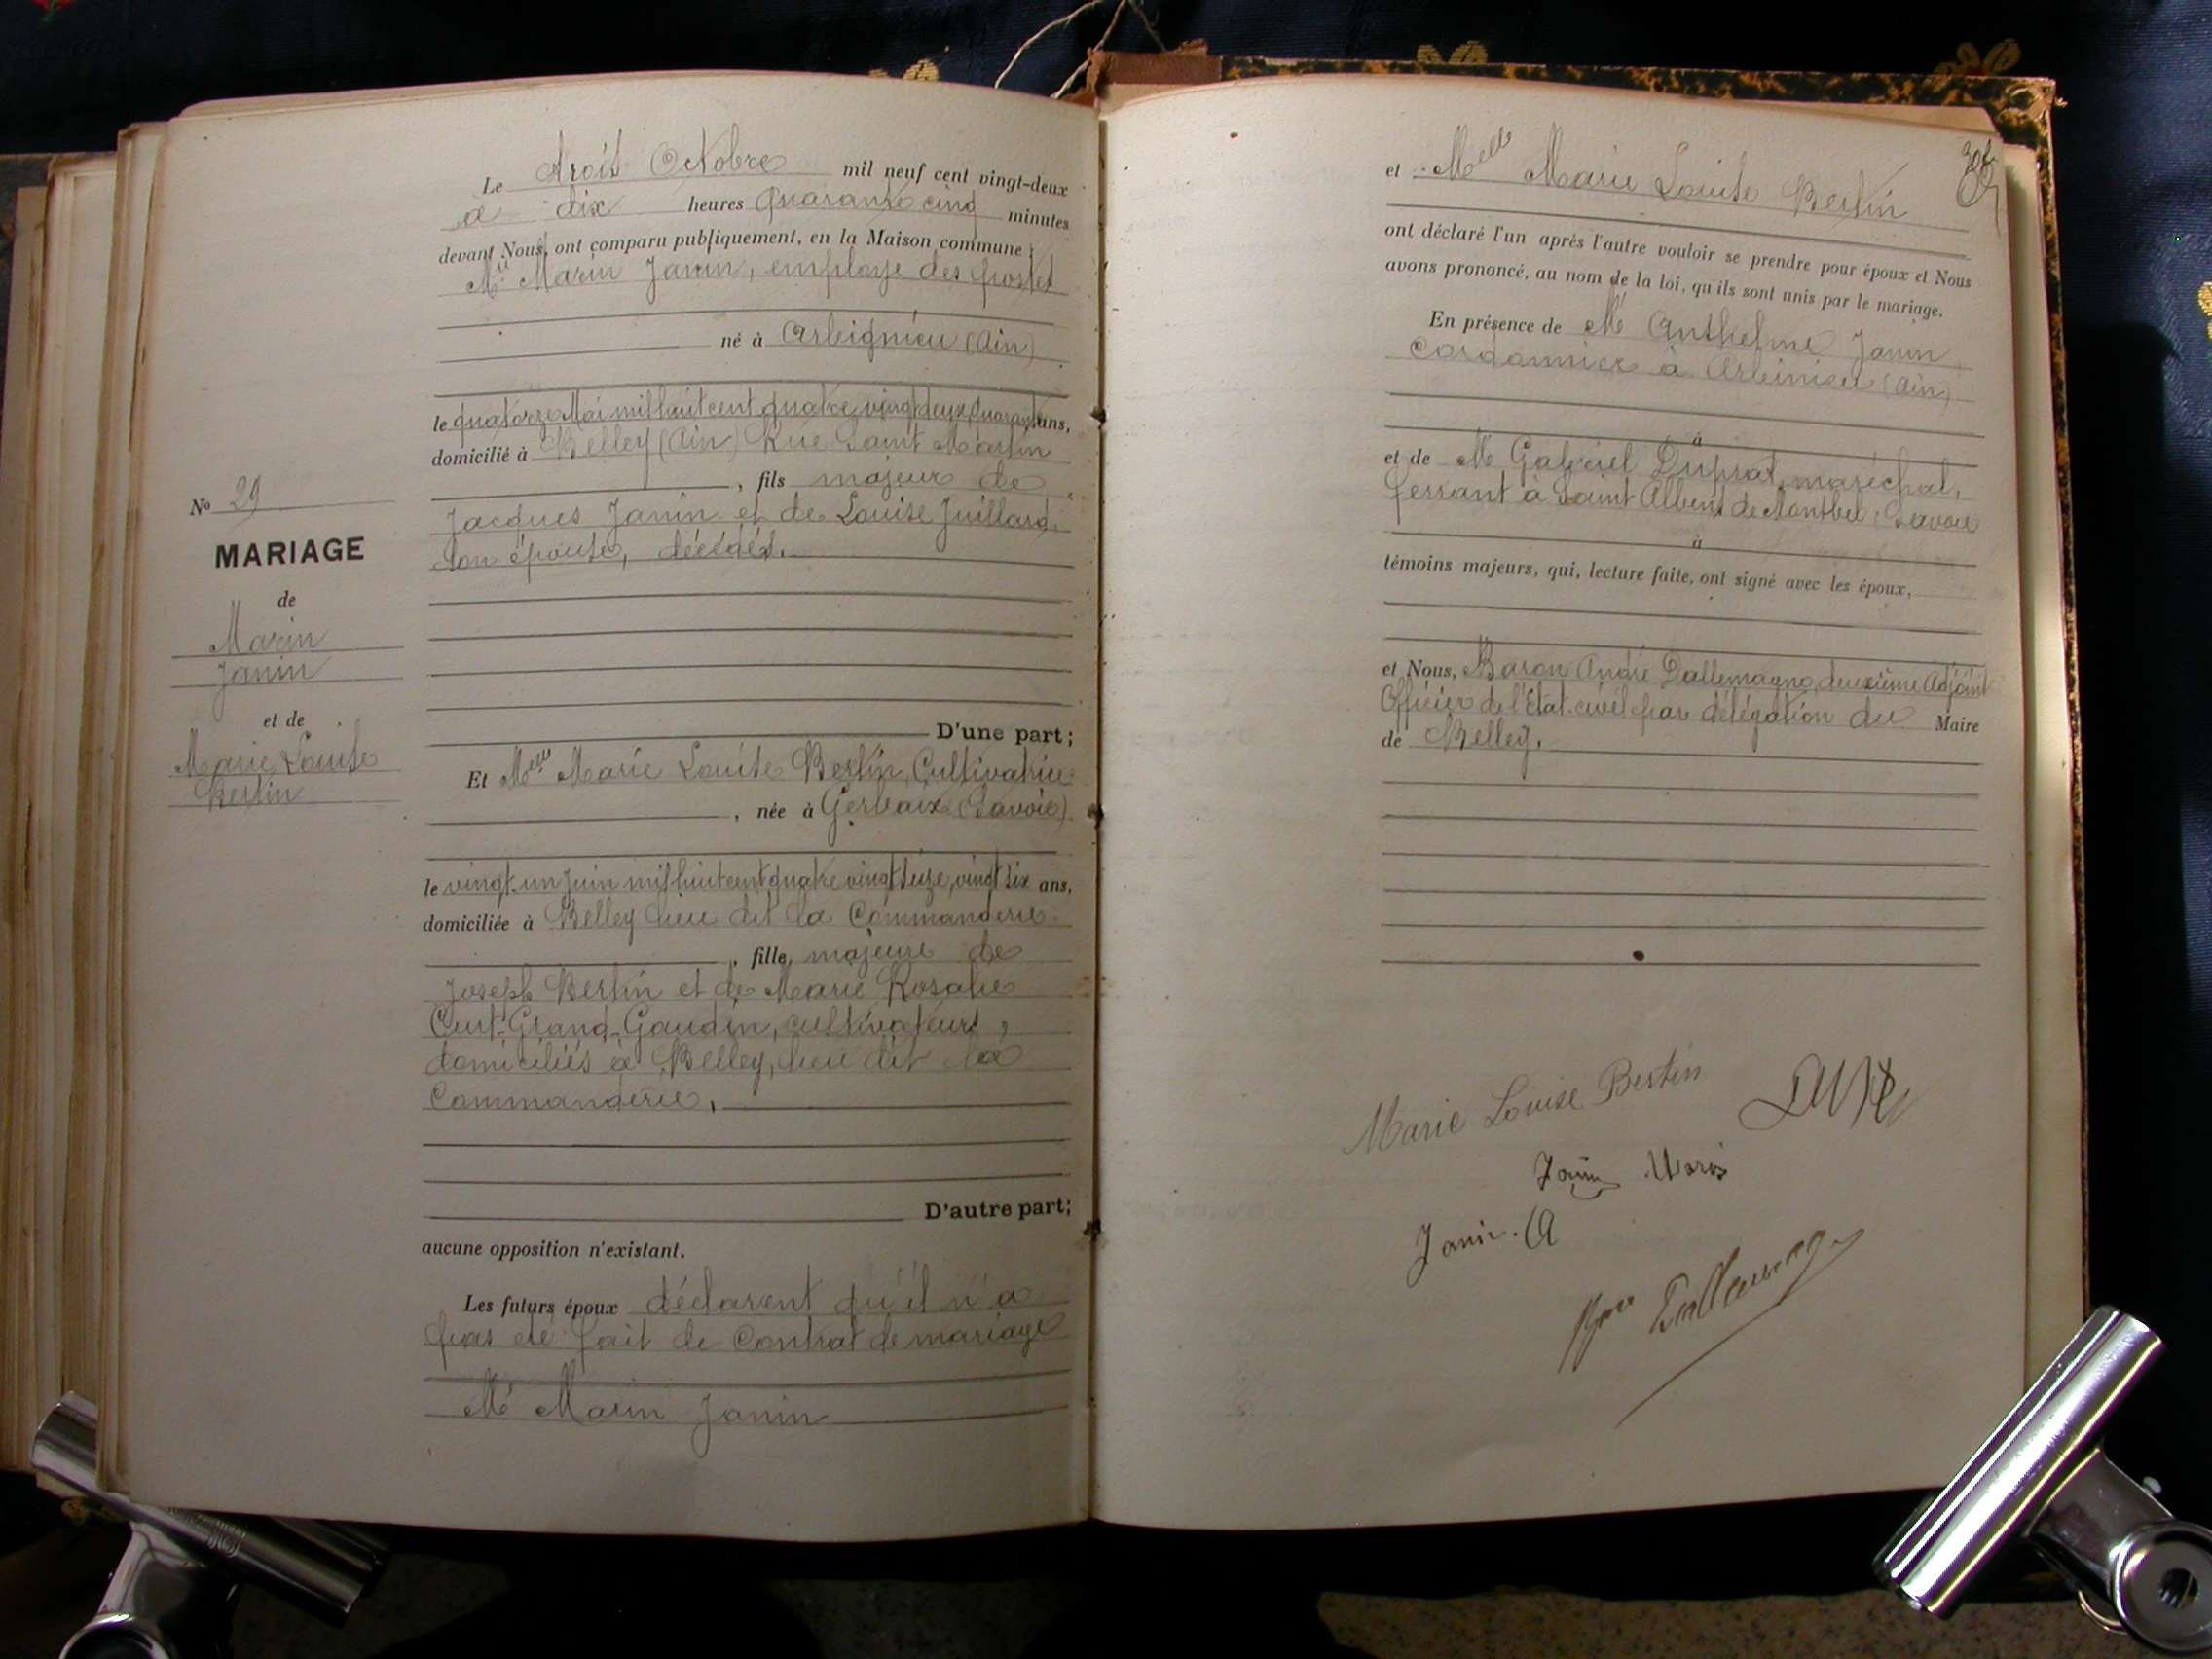 Le trois Octobre mil neuf cent vingt-deux
à dix heures quarante cinq minutes
devant Nous, ont comparu publiquement, en la Maison commune :
Mr Marin Janin, employé des postes
né à Arbignieu (Ain)
le quatorze Mai mil huit cent quatre vingt deux, quarante ans,
domicilié à Belley (Ain) Rue Saint Martin
, fils majeur de
Jacques Janin et de Louise Juillard
son épouse, décédés.
No 29
MARIAGE
de
Marin
Janin
et de
Marie Louise
Bertin
D'une part ;
Et Melle Marie Louise Bertin, Cultivatrice
, née à Gerbaix (Savoie)
le vingt un Juin mil huit cent quatre vingt seize, vingt six ans,
domiciliée à Belley lieu dit la Commanderie
, fille, majeure de
Joseph Bertin et de Marie Rosalie
Curt-Grand-Gaudin, cultivateurs,
domiciliés à Belley, lieu dit la
Commanderie,
D'autre part ;
aucune opposition n'existant.
Les futurs époux déclarent qu'il n'a
pas été fait de Contrat de mariage
Mr Marin Janin
et Melle Marie Louise Bertin
ont déclaré l'un après l'autre vouloir se prendre pour époux et Nous
avons prononcé, au nom de la loi, qu'ils sont unis par le mariage.
En présence de Mr Anthelme Janin
Cordonnier à Arbinieu (Ain)
à
et de Mr Gabriel Duprat, maréchal,
ferrant à Saint Alban de Montbel, Savoie
à
témoins majeurs, qui, lecture faite, ont signé avec les époux,
et Nous, Baron André Dallemagne, deuxième Adjoint
Officier de l'Etat-civil par délégation du Maire
de Belley.
Marie Louise Bertin
Janin Marin
Janin. A
Bon Dallemagne